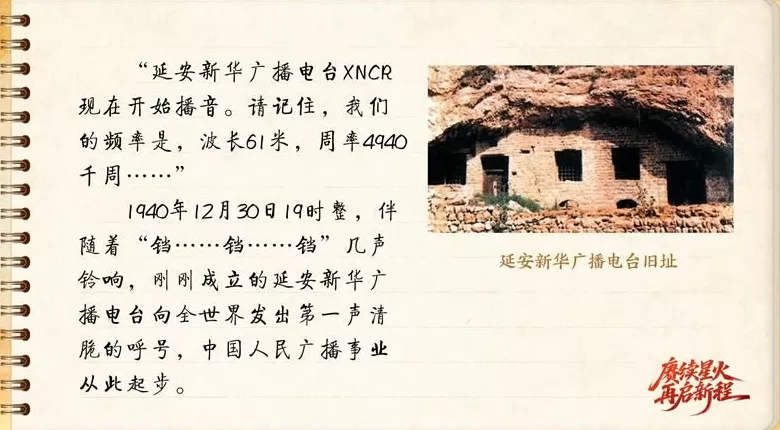 “延安新华广播电台XNCR
现在开始播音。请记住，我们
的频率是，波长61米，周率4940
千周……”
1940年12月30日19时整，伴
随着“铛……铛……铛”几声
铃响，刚刚成立的延安新华广
播电台向全世界发出第一声清
脆的呼号，中国人民广播事业
从此起步。
延安新华广播电台旧址
赓续星火
再启新程